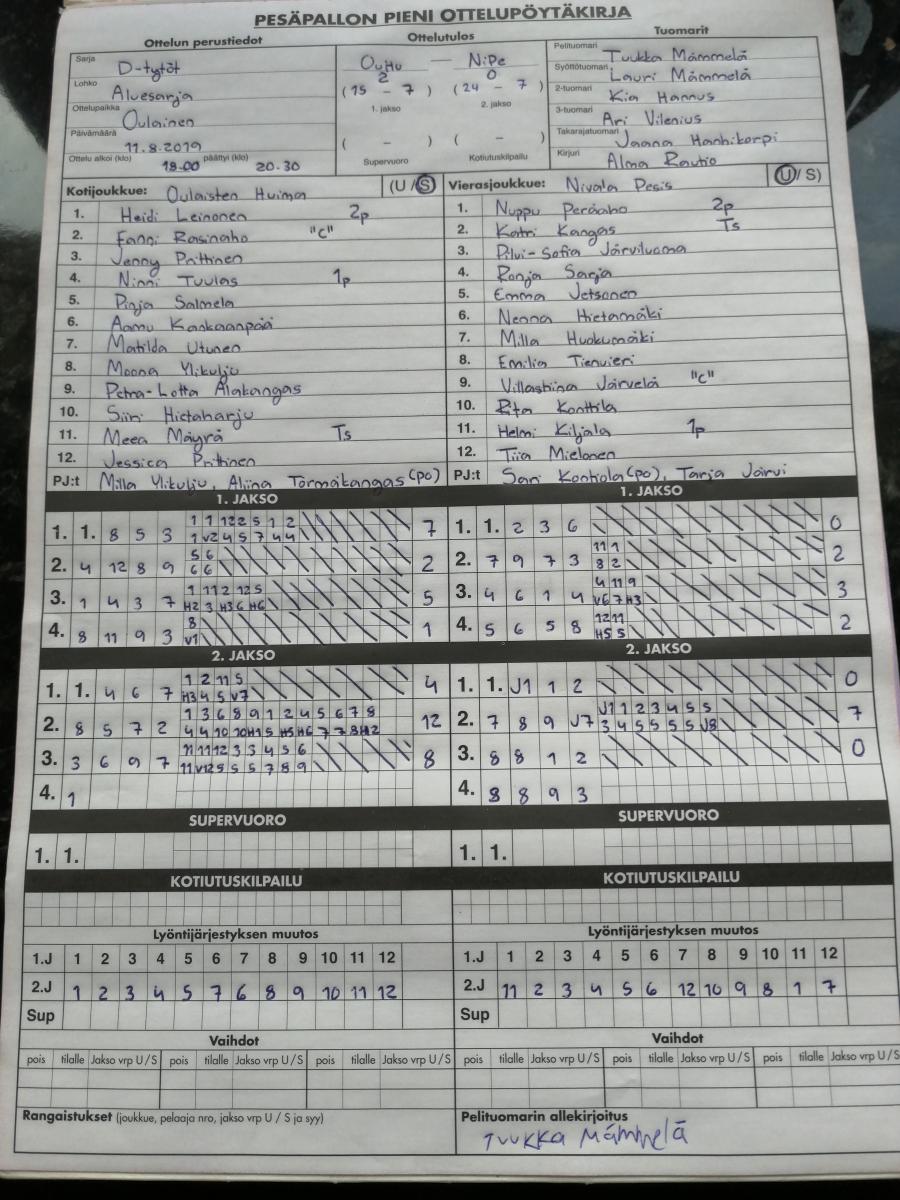 PESÄPALLON PIENI OTTELUPÖYTÄKIRJA
Ottelun perustiedot
Ottelutulos
Tuomarit
Sarja D-tytöt
Lohko Aluesarja
Ottelupaikka Oulainen
Päivämäärä 11.8.2019
Ottelu alkoi (klo) 18.00 päättyi (klo) 20.30
OuHu — NiPe
2 0
(15 - 7) (24 - 7)
1. jakso 2. jakso
( - ) ( - )
Supervuoro Kotiutuskilpailu
Pelituomari Tuukka Mämmelä
Syöttötuomari Lauri Mämmelä
2-tuomari Kia Hannus
3-tuomari Ari Vilenius
Takarajatuomari Jaana Hanhikorpi
Kirjuri Alma Rautio
Kotijoukkue: Oulaisten Huima (U / S)
1. Heidi Leinonen 2p
2. Fanni Rasinaho "C"
3. Jenny Prittinen
4. Ninni Tuulas 1p
5. Pinja Salmela
6. Aamu Kankaanpää
7. Matilda Utunen
8. Moona Ylikulju
9. Petra-Lotta Alakangas
10. Siiri Hietaharju
11. Meea Mäyrä Ts
12. Jessica Prittinen
PJ:t Milla Ylikulju, Aliina Törmäkangas (po)
Vierasjoukkue: Nivala Pesis (U / S)
1. Nuppu Peräaho 2p
2. Katri Kangas Ts
3. Pilvi-Sofia Järviluoma
4. Ronja Sarja
5. Emma Jetsonen
6. Nenna Hietamäki
7. Milla Huokumäki
8. Emilia Tienvieri
9. Villastiina Järvelä "C"
10. Rita Konttila
11. Helmi Kiljala 1p
12. Tiia Mielonen
PJ:t Sari Kontiola (po), Tarja Järvi
1. JAKSO
1. 1. 8 5 3 1 1 12 2 5 1 2 7
1 V2 4 5 7 4 4
2. 4 12 8 9 5 6 2
6 6
3. 1 4 3 7 1 11 2 12 5 5
H2 3 H3 6 H6
4. 8 11 9 3 8 1
V1
1. JAKSO
1. 1. 2 3 6 0
2. 7 9 7 3 11 1 2
8 2
3. 4 6 1 4 4 11 9 3
V6 7 H3
4. 5 6 5 8 12 11 2
H5 5
2. JAKSO
1. 1. 4 6 7 1 2 11 5 4
H3 4 5 V7
2. 8 5 7 2 1 3 6 8 9 1 2 4 5 6 7 8 12
4 4 10 10 H1 5 H5 H6 7 7 8 H12
3. 3 6 9 7 11 11 12 3 3 4 5 6 8
11 V12 5 5 5 7 8 9
4. 1
2. JAKSO
1. 1. J1 1 2 0
2. 7 8 9 J7 J1 2 3 4 5 5 5 7
3 4 5 5 5 5 J8
3. 8 8 1 2 0
4. 8 8 9 3
SUPERVUORO
1. 1.
SUPERVUORO
1. 1.
KOTIUTUSKILPAILU
KOTIUTUSKILPAILU
Lyöntijärjestyksen muutos
1.J 1 2 3 4 5 6 7 8 9 10 11 12
2.J 1 2 3 4 5 7 6 8 9 10 11 12
Sup
Lyöntijärjestyksen muutos
1.J 1 2 3 4 5 6 7 8 9 10 11 12
2.J 11 2 3 4 5 6 12 10 9 8 1 7
Sup
Vaihdot
pois tilalle Jakso vrp U / S pois tilalle Jakso vrp U / S pois tilalle Jakso vrp U / S
Vaihdot
pois tilalle Jakso vrp U / S pois tilalle Jakso vrp U / S pois tilalle Jakso vrp U / S
Rangaistukset (joukkue, pelaaja nro, jakso vrp U / S ja syy)
Pelituomarin allekirjoitus
Tuukka Mämmelä